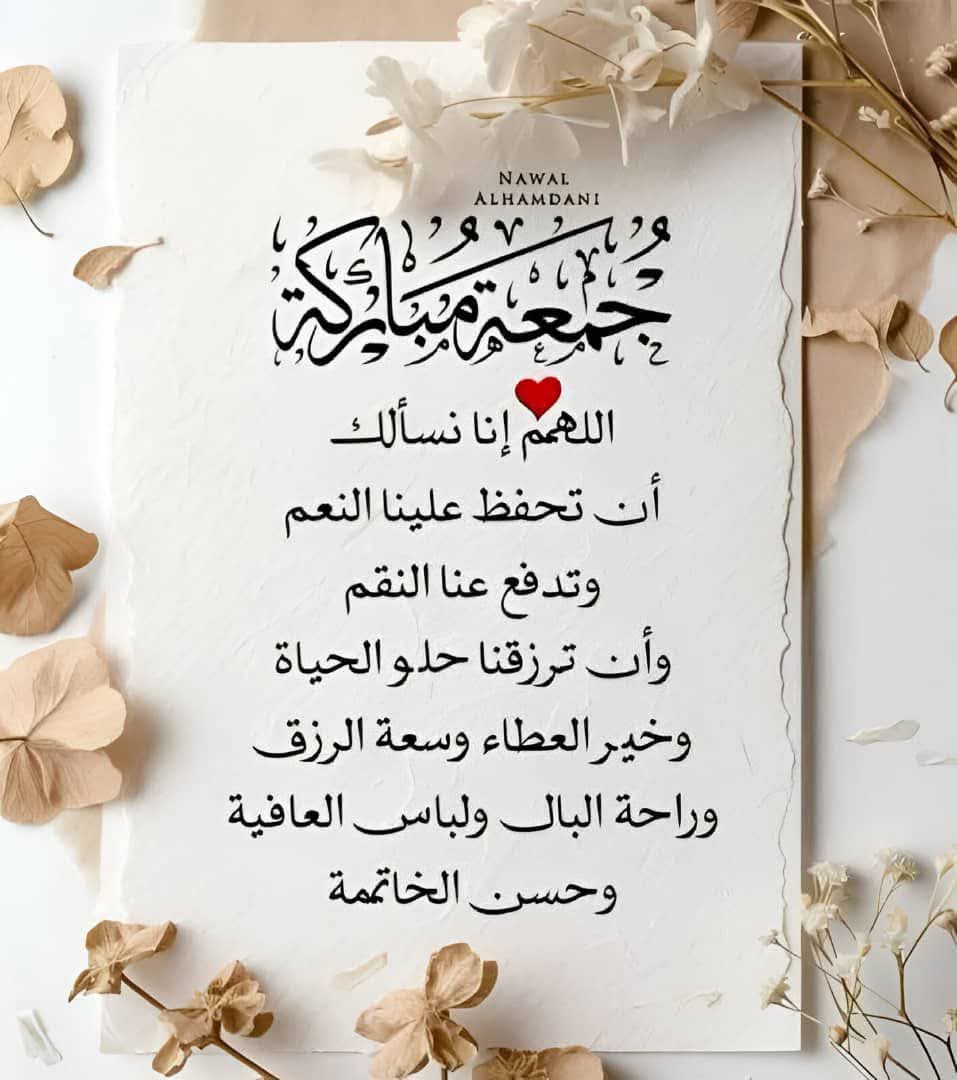 NAWAL
ALHAMDANI
جُمعة مُباركة
اللهم إنا نسألك
أن تحفظ علينا النعم
وتدفع عنا النقم
وأن ترزقنا حلو الحياة
وخير العطاء وسعة الرزق
وراحة البال ولباس العافية
وحسن الخاتمة